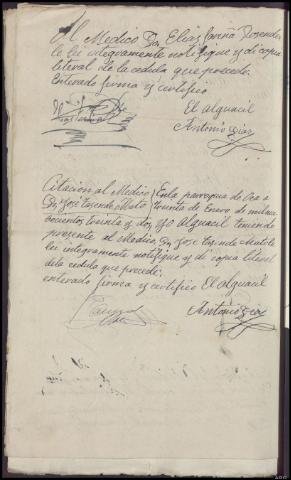 Al Medico Dn. Elias Rosende
le lei integramente notifique y di copia
literal de la cedula que precede.
Enterado firma y certifico
El alguacil
Antonio Diaz
Citacion al Medico En la parroquia de Oza a
Dn. José Rosende Mato treinta de Enero de mil nove
cientos treinta y dos, yo Alguacil teniendo
presente al Medico Dn. José Rosende Mato le
lei integramente notifique y di copia literal
de la cedula que precede:
enterado firma y certifico El alguacil
Antonio Diaz